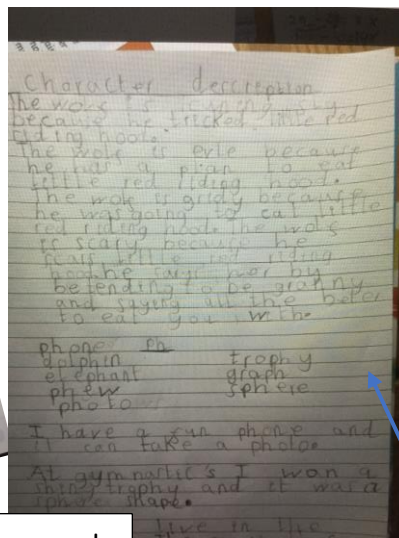 Character description
The wolf is cuning sly
because he tricked little red
riding hood.
The wolf is evle because
he has a plan to eat
little red riding hood.
The wolf is gridy because
he was going to eat little
red riding hood. The wolf
is scary because he
scars little red riding
hood. he scars her by
betending to be granny
and saying all the beter
to eat you with.
phone ph
dolphin trophy
elephant graph
phew sphere
photo
I have a fun phone and
it can take a photo.
At gymnastic's I won a
shiny trophy and it was a
sphere shape.
live in the